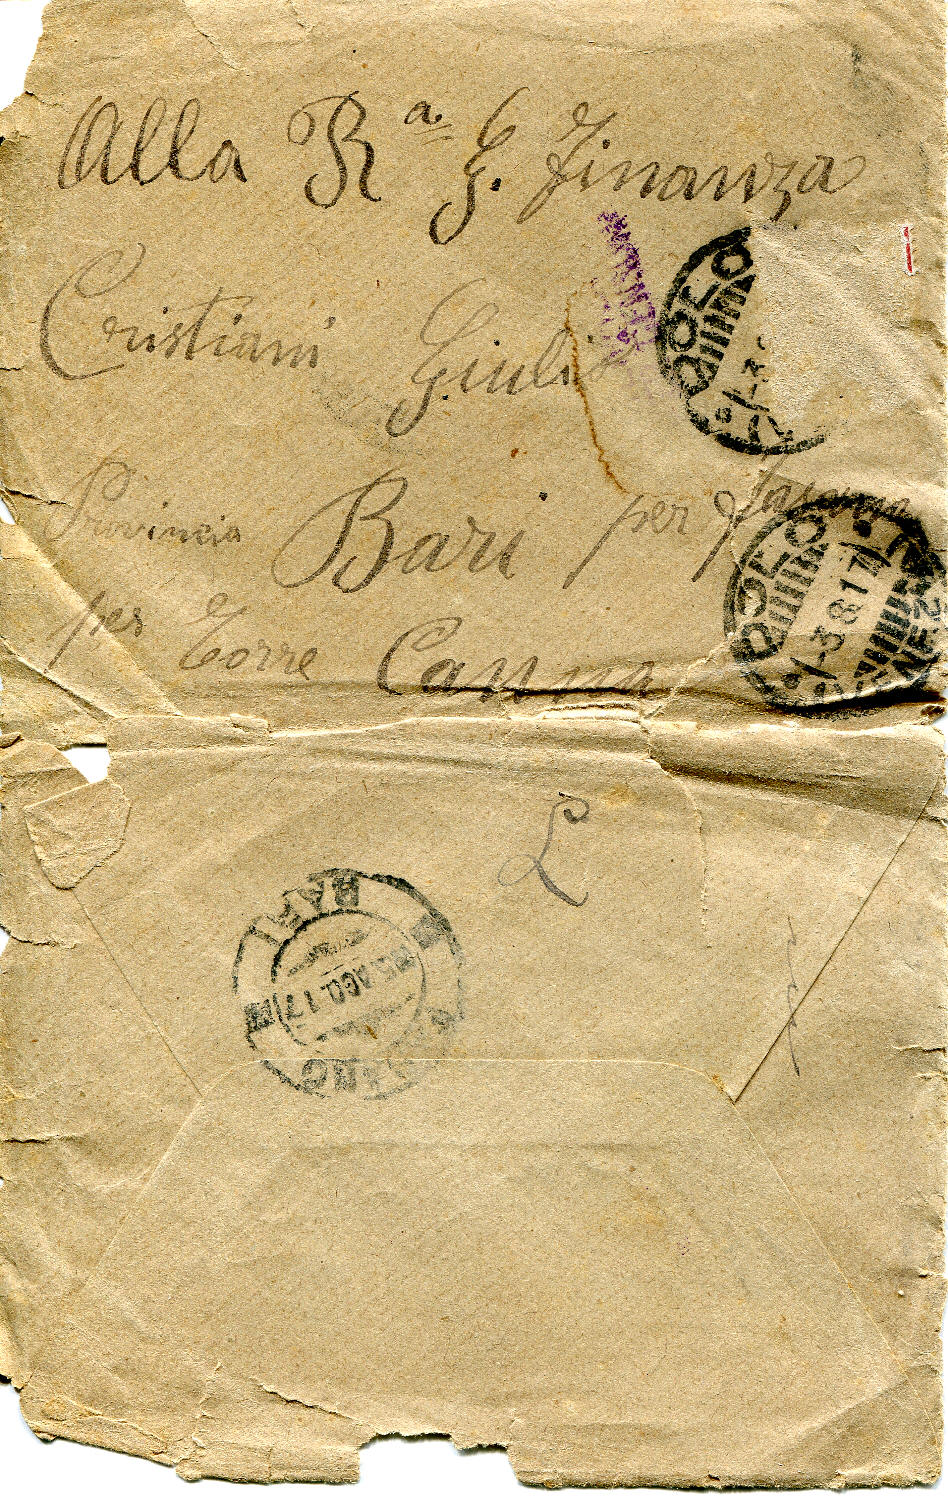 Alla Rª G. Finanza
Cristiani Giulio
Provincia Bari per Fasano
per Torre Canna
DOE
-3
DOE
-3 8 17
L
BARI
AGO. 17